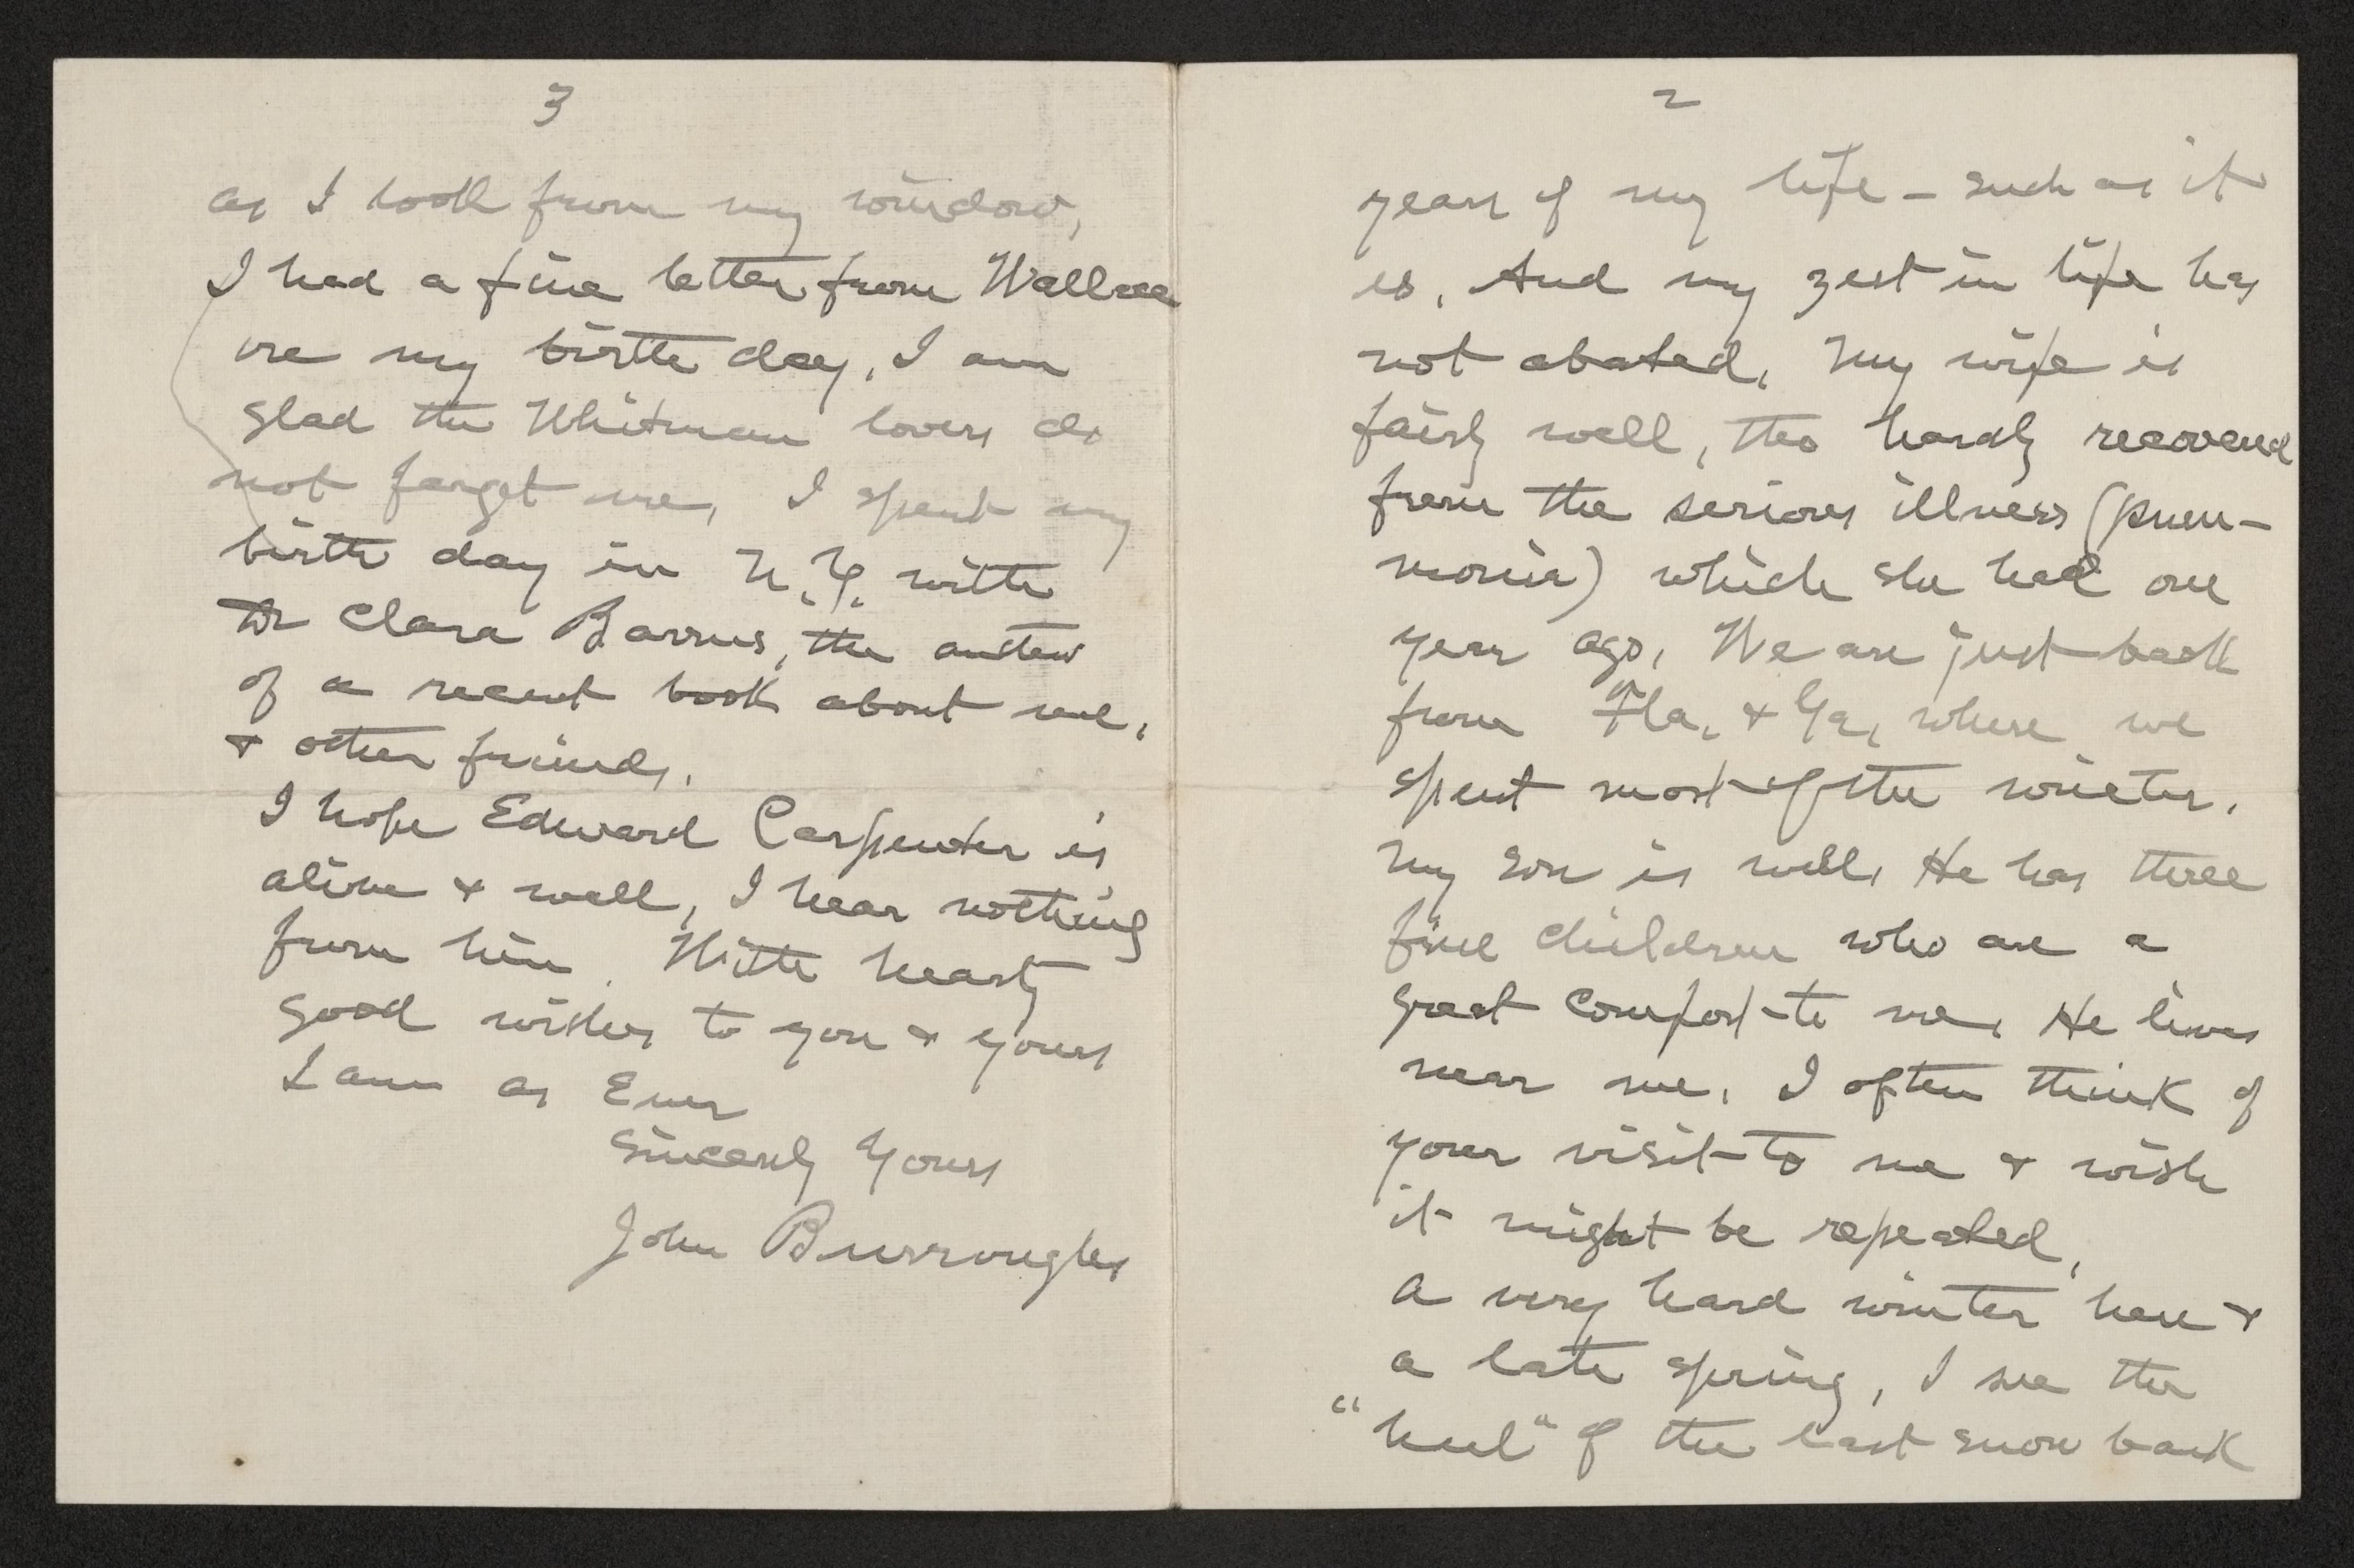 2
years of my life – such as it
is. And my zest in life has
not abated. My wife is
fairly well, tho hardly recovered
from the serious illness (pneu-
monia) which she had one
year ago. We are just back
from Fla. & Ga, where we
spent most of the winter.
My son is well. He has three
fine children who are a
great comfort to me. He lives
near me. I often think of
your visit to me & wish
it might be repeated.
A very hard winter here &
a late spring, I see the
"heel" of the last snow bank
3
as I look from my window,
I had a fine letter from Wallace
on my birth day. I am
glad the Whitman lovers do
not forget me, I spent my
birth day in N.Y. with
Dr Clara Barrus, the author
of a recent book about me,
& other friends.
I hope Edward Carpenter is
alive & well, I hear nothing
from him. With hearty
good wishes to you & yours
I am as Ever
Sincerely Yours
John Burroughs